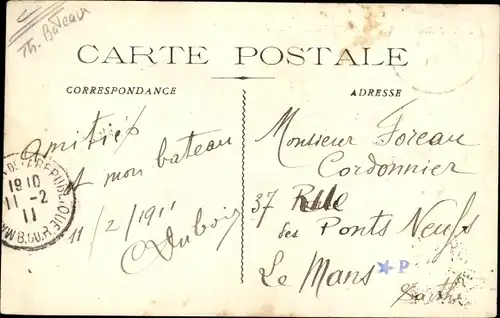 Th. Bateau
CARTE POSTALE
CORRESPONDANCE
ADRESSE
amitiés
et mon bateau
11/2/1911
Dubois
Monsieur Foreau
Cordonnier
37 Rue
des Ponts Neufs
Le Mans
*P
Sarthe
DE LA REPUBLIQUE
1910
11 - 2
11